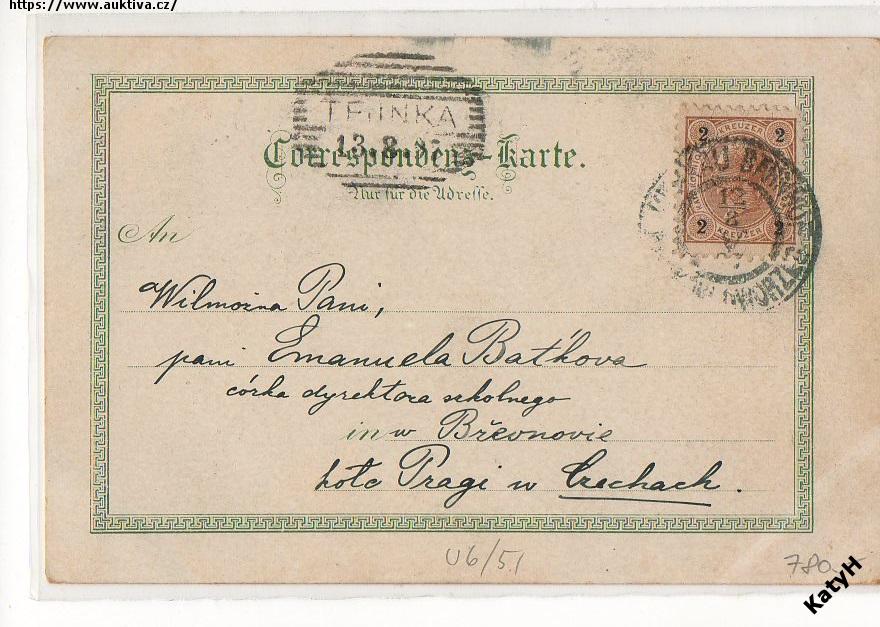 https://www.auktiva.cz/
13.8.
Correspondenz-Karte.
Nur für die Adresse.
An
2 KREUZER 2
2 KREUZER 2
12
8
97
Wilmożna Pani,
pani Emanuela Bat'kova
córka dyrektora szkolnego
in w Břevnovie
koło Pragi w Czechach.
U6/51
780.-
KatyH